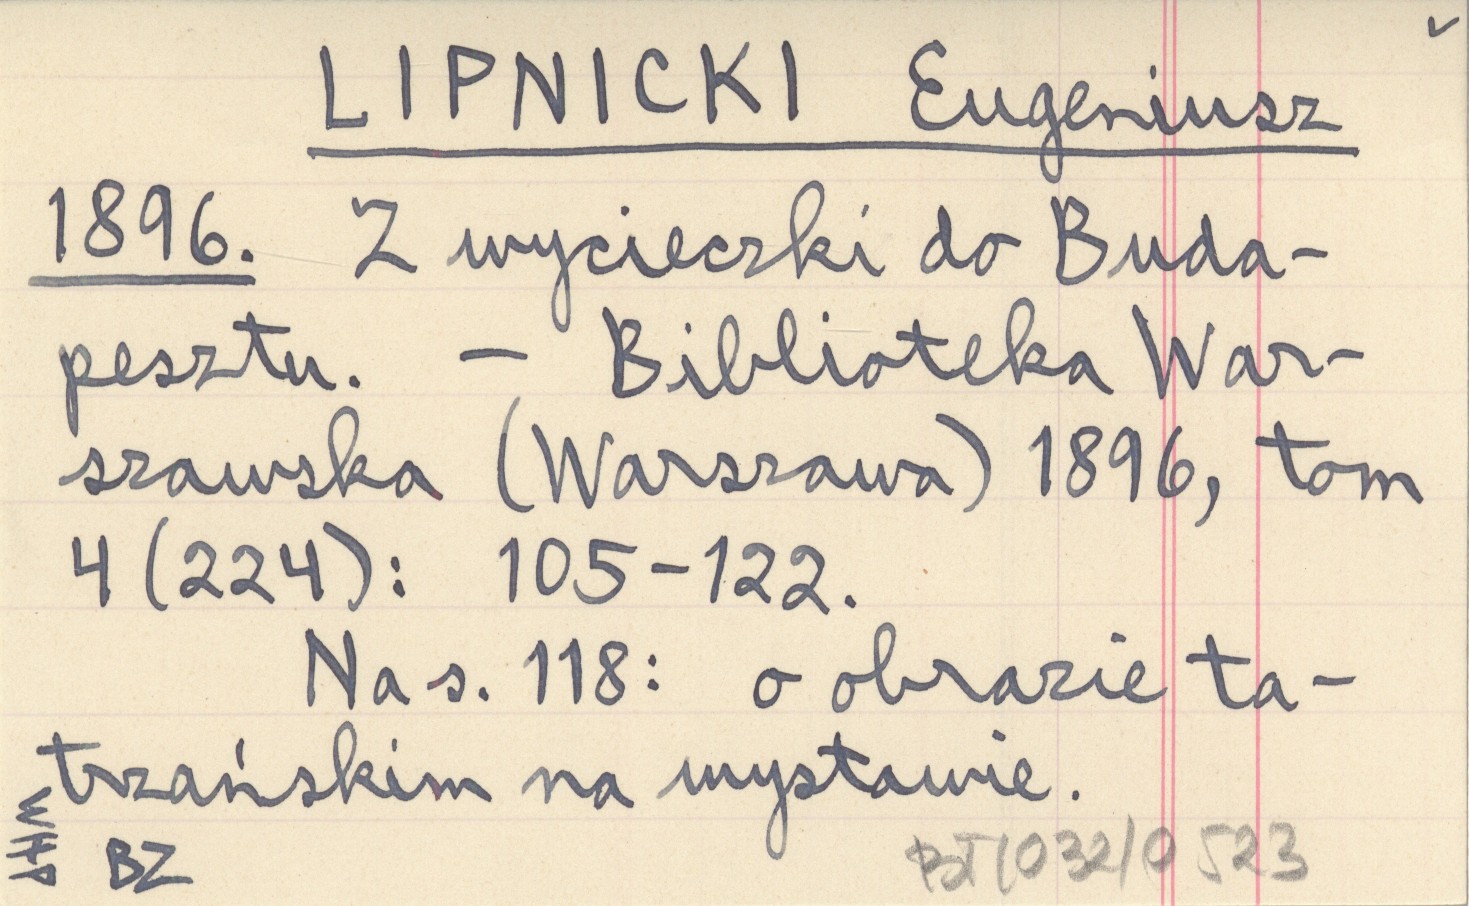 LIPNICKI Eugeniusz
1896. Z wycieczki do Buda-
pesztu. - Biblioteka War-
szawska (Warszawa) 1896, tom
4 (224): 105-122.
Na s. 118: o obrazie ta-
trzańskim na wystawie.
WHP
BZ
BT/032/0523